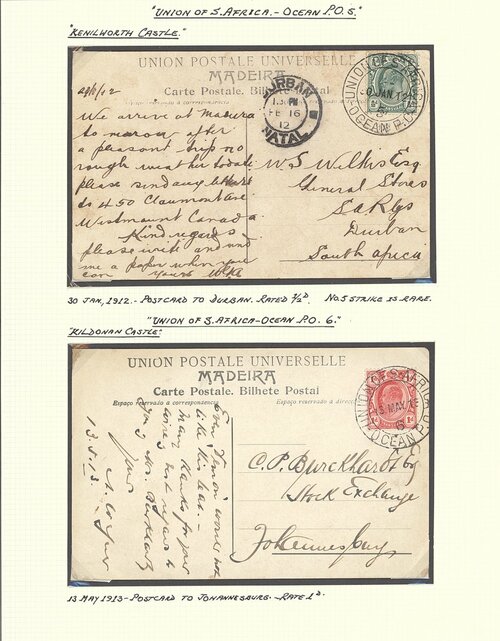 "UNION OF S. AFRICA. - OCEAN P.O. 5."
"KENILWORTH CASTLE."
UNION POSTALE UNIVERSELLE
MADEIRA
Carte Postale. Bilhete Postal
DURBAN
1.3 PM
FE 16
12
NATAL
UNION OF S. AFRICA
JAN 12
5
OCEAN P.O.
We arrive at Madeira
to morrow after
a pleasant trip no
rough weather to date
please send any letters
to 450 Claremont Ave.
Westmount Canada.
Kind regards
please write and send
me a paper when you
can Yours
W S Wilkis Esq
General Stores
S A Rlys
Durban
South Africa
30 JAN, 1912. - POSTCARD TO DURBAN. RATED ½D. NO.5 STRIKE IS RARE.
"UNION OF S. AFRICA-OCEAN P.O. 6."
"KILDONAN CASTLE."
UNION POSTALE UNIVERSELLE
MADEIRA
Carte Postale. Bilhete Postal
Espaço reservado á correspondencia
Espaço reservado á direcção
UNION OF S. AFRICA
13 MAY 13
6
OCEAN P.O.
would not
like this heat. -
Many thanks for your
regards to
you & Mrs. Burkhardt
Yours
13.5.13.
C. P. Burckhardt Esq
Stock Exchange
Johannesburg
13 MAY 1913 - POSTCARD TO JOHANNESBURG. - RATE 1D.